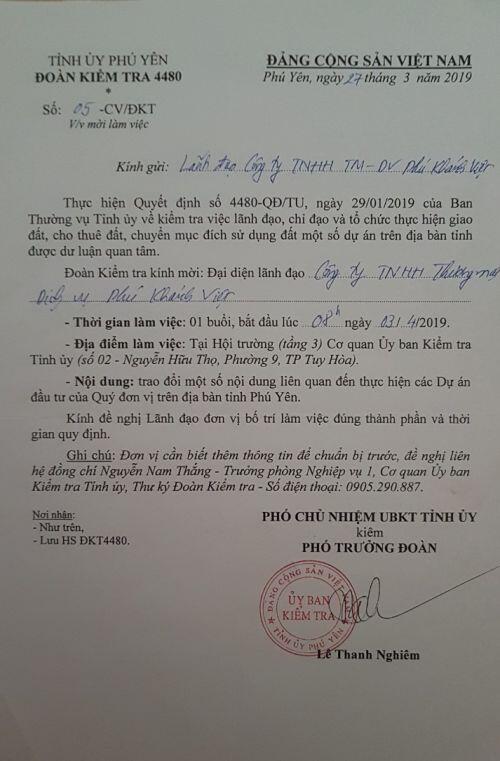 TỈNH ỦY PHÚ YÊN
ĐOÀN KIỂM TRA 4480
*
Số: 05 -CV/ĐKT
V/v mời làm việc
ĐẢNG CỘNG SẢN VIỆT NAM
Phú Yên, ngày 27 tháng 3 năm 2019
Kính gửi: Lãnh đạo Công ty TNHH TM-DV Phú Khánh Việt
Thực hiện Quyết định số 4480-QĐ/TU, ngày 29/01/2019 của Ban
Thường vụ Tỉnh ủy về kiểm tra việc lãnh đạo, chỉ đạo và tổ chức thực hiện giao
đất, cho thuê đất, chuyển mục đích sử dụng đất một số dự án trên địa bàn tỉnh
được dư luận quan tâm.
Đoàn Kiểm tra kính mời: Đại diện lãnh đạo Công ty TNHH Thương mại
Dịch vụ Phú Khánh Việt
- Thời gian làm việc: 01 buổi, bắt đầu lúc 08h ngày 03/4/2019.
- Địa điểm làm việc: Tại Hội trường (tầng 3) Cơ quan Ủy ban Kiểm tra
Tỉnh ủy (số 02 - Nguyễn Hữu Thọ, Phường 9, TP Tuy Hòa).
- Nội dung: trao đổi một số nội dung liên quan đến thực hiện các Dự án
đầu tư của Quý đơn vị trên địa bàn tỉnh Phú Yên.
Kính đề nghị Lãnh đạo đơn vị bố trí làm việc đúng thành phần và thời
gian quy định.
Ghi chú: Đơn vị cần biết thêm thông tin để chuẩn bị trước, đề nghị liên
hệ đồng chí Nguyễn Nam Thắng - Trưởng phòng Nghiệp vụ 1, Cơ quan Ủy ban
Kiểm tra Tỉnh ủy, Thư ký Đoàn Kiểm tra - Số điện thoại: 0905.290.887.
Nơi nhận:
- Như trên,
- Lưu HS ĐKT4480.
PHÓ CHỦ NHIỆM UBKT TỈNH ỦY
kiêm
PHÓ TRƯỞNG ĐOÀN
ĐẢNG CỘNG SẢN VIỆT NAM
ỦY BAN
KIỂM TRA
TỈNH ỦY PHÚ YÊN
Lê Thanh Nghiêm